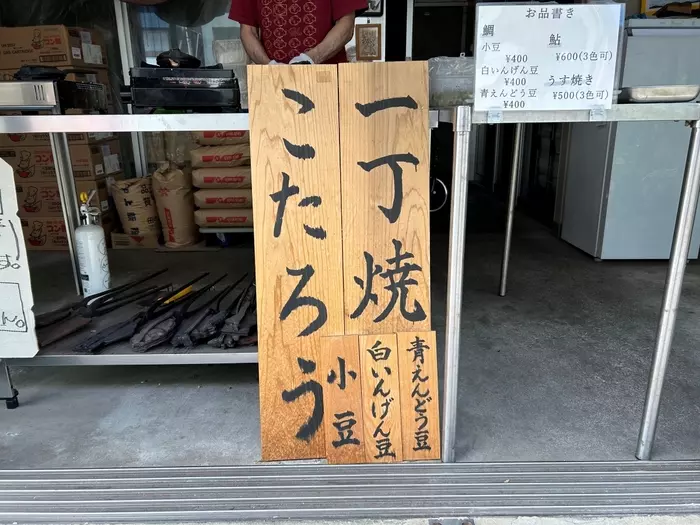 一丁焼
こたろう
青えんどう豆
白いんげん豆
小豆
お品書き
鯛
小豆
¥400
白いんげん豆
¥400
青えんどう豆
¥400
鮎
¥600(3色可)
うす焼き
¥500(3色可)
す。
ん。